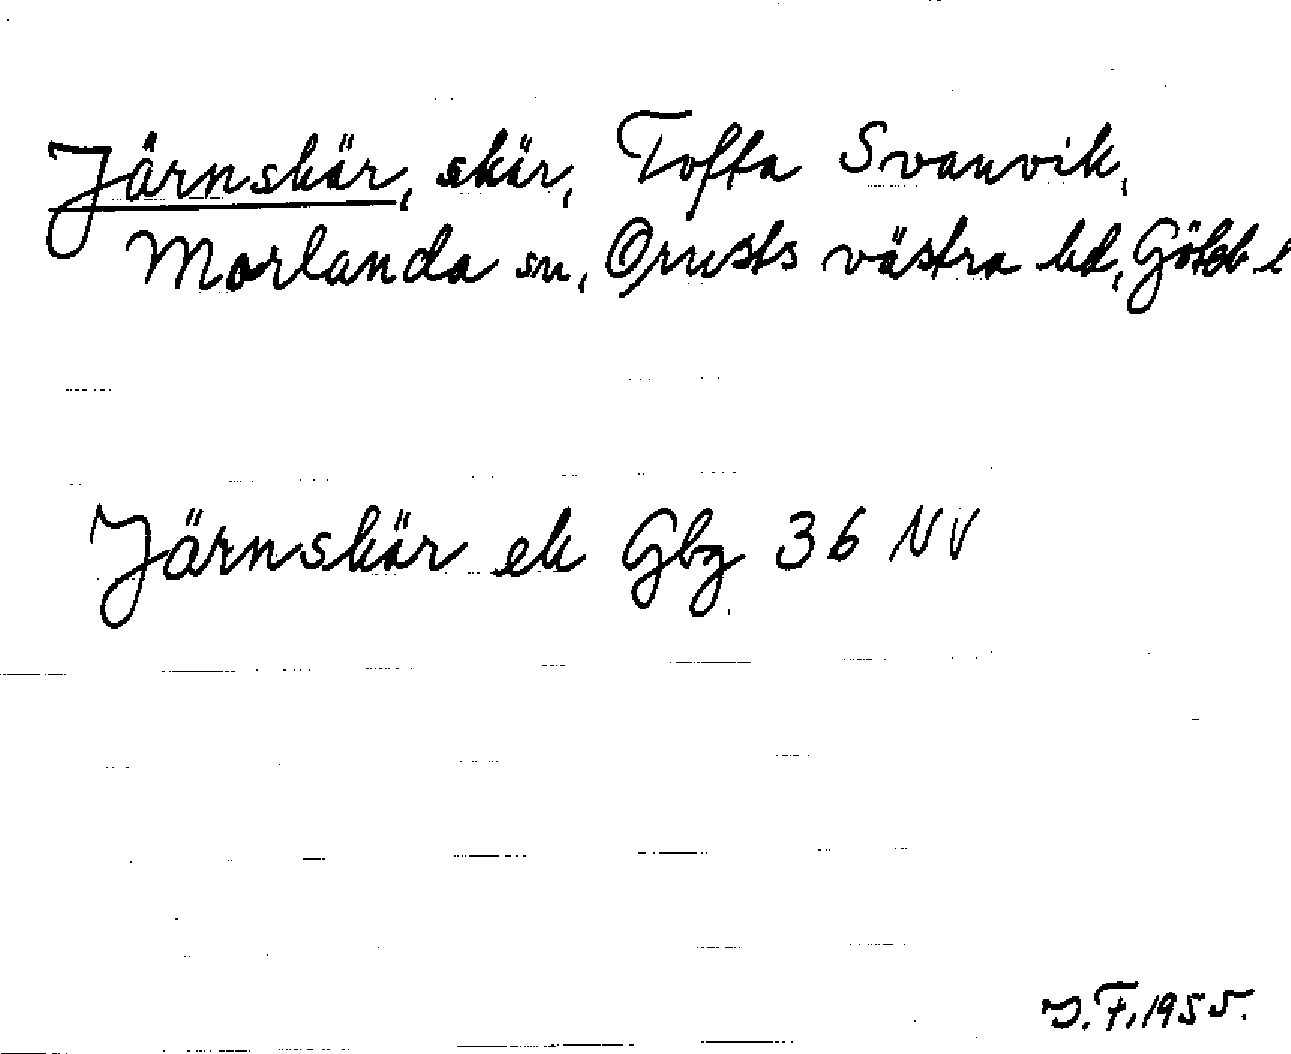 Järnskär, skär, Tofta Svanvik,
Morlanda sn, Orusts västra hd, Götebb l
Järnskär ek Gbg 36 NV
J.F. 1955.